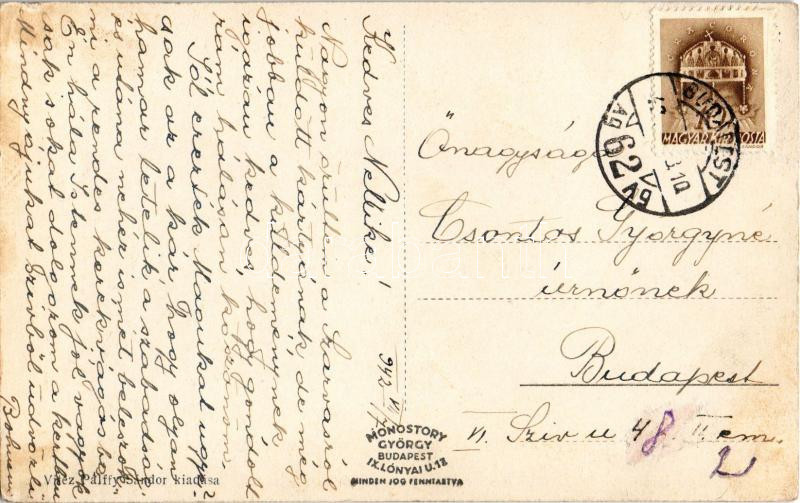 942 VI/7
Kedves Nellike!
Nagyon örültem a Szarvasról
küldött kártyának de még
jobban a küldeménynek
igazán kedves, hogy gondolt
rám hálásan köszönöm.
Jól érezték Magukat ugye?
csak az a kár, hogy olyan
hamar letelik a szabadság
és utána nehéz ismét beleszok-
ni a rendes kerékvágásba.
Én hála Istennek jól vagyok
csak sokat dolgozom a kertben
Mindnyájukat Szívből üdvözli
Vitéz Pálffy Sándor kiadása
MONOSTORY
GYÖRGY
BUDAPEST
IX. LÓNYAI U. 18
MINDEN JOG FENNTARTVA
CORONA
MAGYAR KIR. POSTA
BUDAPEST
62
Önagysága
Csontos Györgyné
úrnőnek
Budapest
VI. Sziv u 48 II em.
2